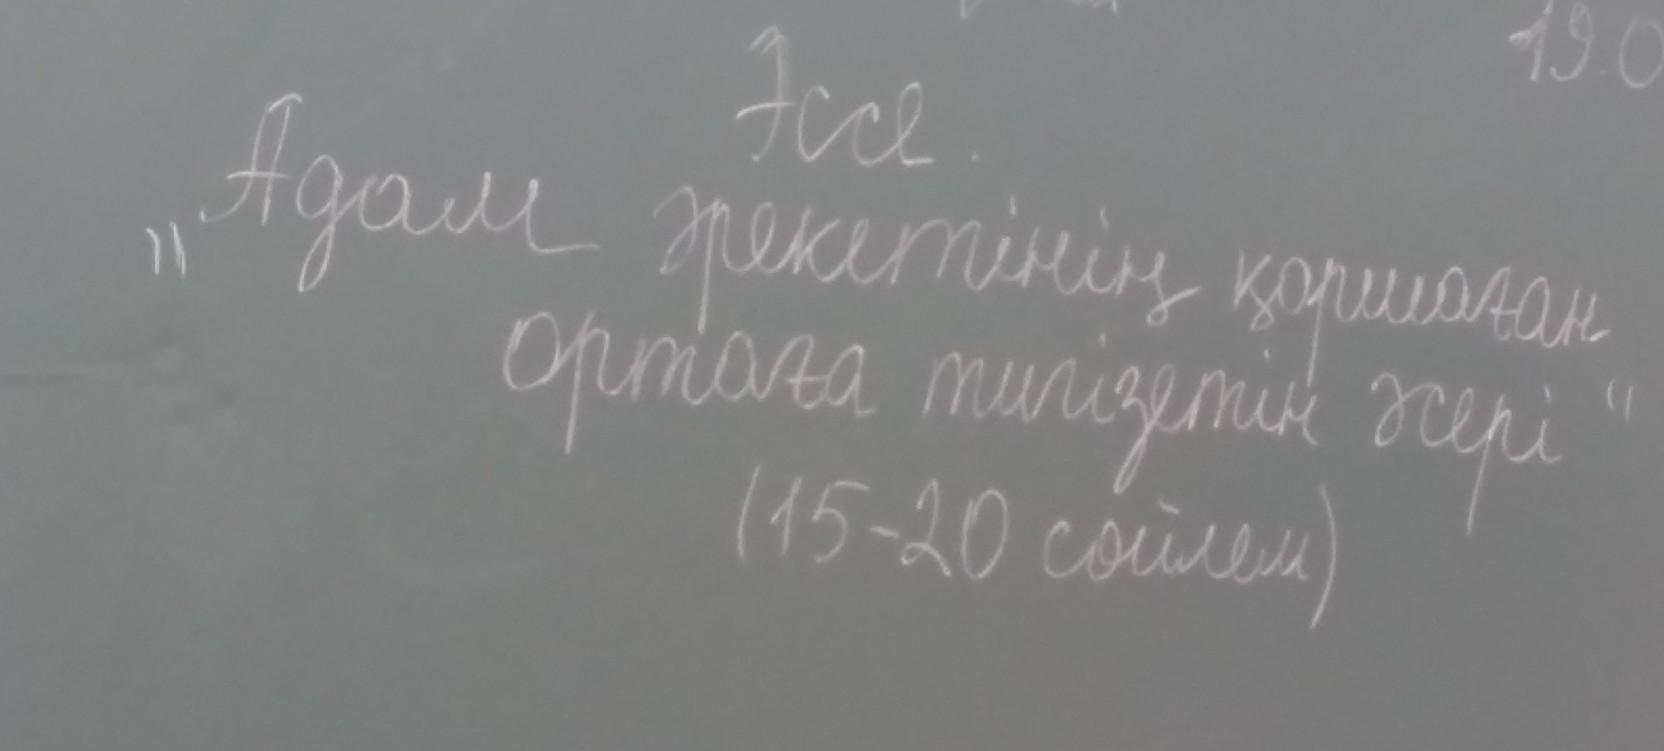 19.0
Эссе.
„Адам әрекетінің қоршаған
ортаға тигізетін әсері"
(15-20 сөйлем)